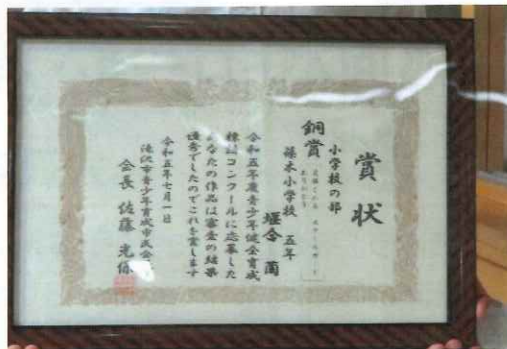 賞状
小学校の部
銅賞
篠木小学校 五年
堰合
令和五年度青少年健全育成
標語コンクールに応募した
あなたの作品は審査の結果
優秀でしたのでこれを賞します
令和五年七月一日
滝沢市青少年育成市民会議
会長 佐藤 光保